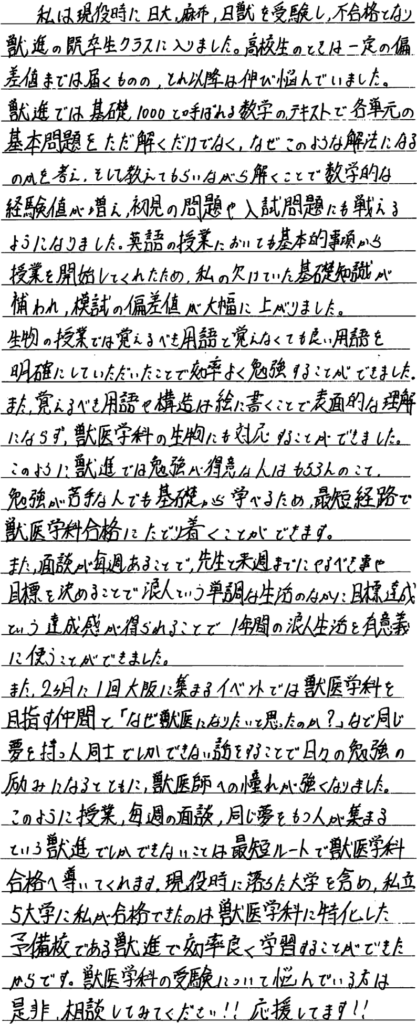 私は現役時に日大,麻布,日獣を受験し,不合格となり
獣進の既卒生クラスに入りました。高校生のときは一定の偏
差値までは届くものの,それ以降は伸び悩んでいました。
獣進では基礎1000と呼ばれる数学のテキストで各単元の
基本問題をただ解くだけでなく,なぜこのような解法になる
のかを考え,そして教えてもらいながら解くことで数学的な
経験値が増え,初見の問題や入試問題にも戦える
ようになりました。英語の授業においても基本的事項から
授業を開始してくれたため,私の欠けていた基礎知識が
補われ,模試の偏差値が大幅に上がりました。
生物の授業では覚えるべき用語と覚えなくても良い用語を
明確にしていただいたことで効率よく勉強することができました。
また,覚えるべき用語や構造は絵に書くことで表面的な理解
にならず,獣医学科の生物にも対応することができました。
このように獣進では勉強が得意な人はもちろんのこと,
勉強が苦手な人でも基礎から学べるため,最短経路で
獣医学科合格にたどり着くことができます。
また,面談が毎週あることで,先生と来週までにやるべき事や
目標を決めることで浪人という単調な生活のなかに目標達成
という達成感が得られることで1年間の浪人生活を有意義
に使うことができました。
また,2ヶ月に1回大阪に集まるイベントでは獣医学科を
目指す仲間と「なぜ獣医になりたいと思ったのか?」など同じ
夢を持つ人同士でしかできない話をすることで日々の勉強の
励みになるとともに,獣医師への憧れが強くなりました。
このように授業,毎週の面談,同じ夢をもつ人が集まる
という獣進でしかできないことは最短ルートで獣医学科
合格へ導いてくれます。現役時に落ちた大学を含め,私立
5大学に私が合格できたのは獣医学科に特化した
予備校である獣進で効率良く学習することができた
からです。獣医学科の受験について悩んでいる方は
是非,相談してみてください!!応援してます!!